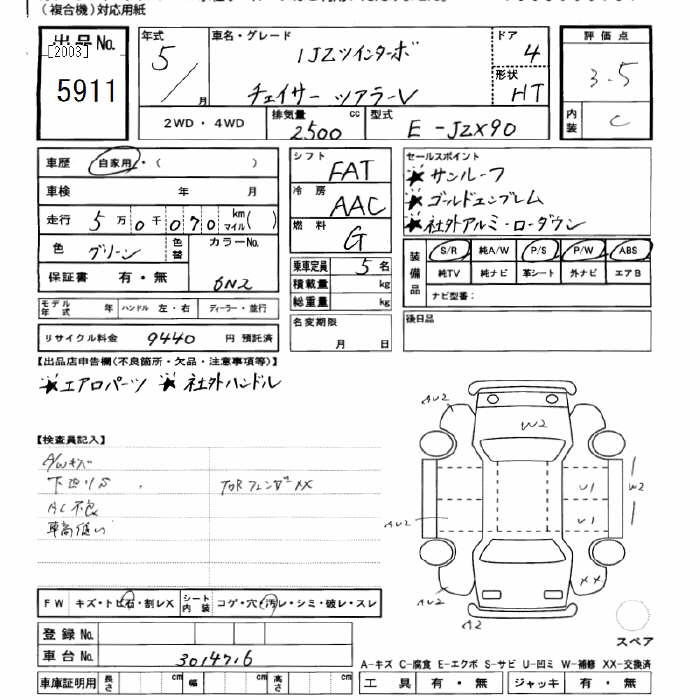 (複合機)対応用紙
出品No.
[2003]
5911
年式
5/
月
車名・グレード
1JZツインターボ
チェイサー ツアラーV
ドア
4
形状
HT
評価点
3.5
内装
C
2WD・4WD
排気量
2500
cc
型式
E-JZX90
車歴 自家用・( )
車検 年 月
走行 5万0千070 km マイル( )
色 グリーン 色替 カラーNo.
6N2
保証書 有・無
モデル年式 年 ハンドル 左・右 ディーラー・並行
リサイクル料金 9440 円 預託済
シフト FAT
冷房 AAC
燃料 G
乗車定員 5 名
積載量 kg
総重量 kg
名変期限
月 日
セールスポイント
★サンルーフ
★ゴールドエンブレム
★社外アルミ・ローダウン
装備品
S/R 純A/W P/S P/W ABS
純TV 純ナビ 革シート 外ナビ エアB
ナビ型番:
後日品
【出品店申告欄(不良箇所・欠品・注意事項等)】
★エアロパーツ ★社外ハンドル
【検査員記入】
A/Wキズ
AC不良
車高低い
AU2
W2
U1
W2
AU2
U1
XX
AU2
A2
スペア
FW キズ・トビ石・割レX シート内装 コゲ・穴・汚レ・シミ・破レ・スレ
登録No.
車台No. 3014716
車庫証明用 長さ cm 幅 cm 高さ cm
A-キズ C-腐食 E-エクボ S-サビ U-凹ミ W-補修 XX-交換済
工具 有・無 ジャッキ 有・無